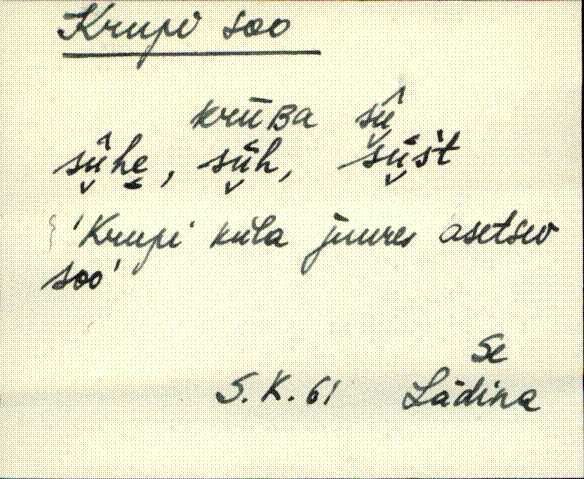 Krupi soo
krūʙa sū̬̂
sū̬̂he̬, sū̬́h, sū̬̀śt
'Krupi küla juures asetsev
soo'
Se
S.K. 61 Lädina